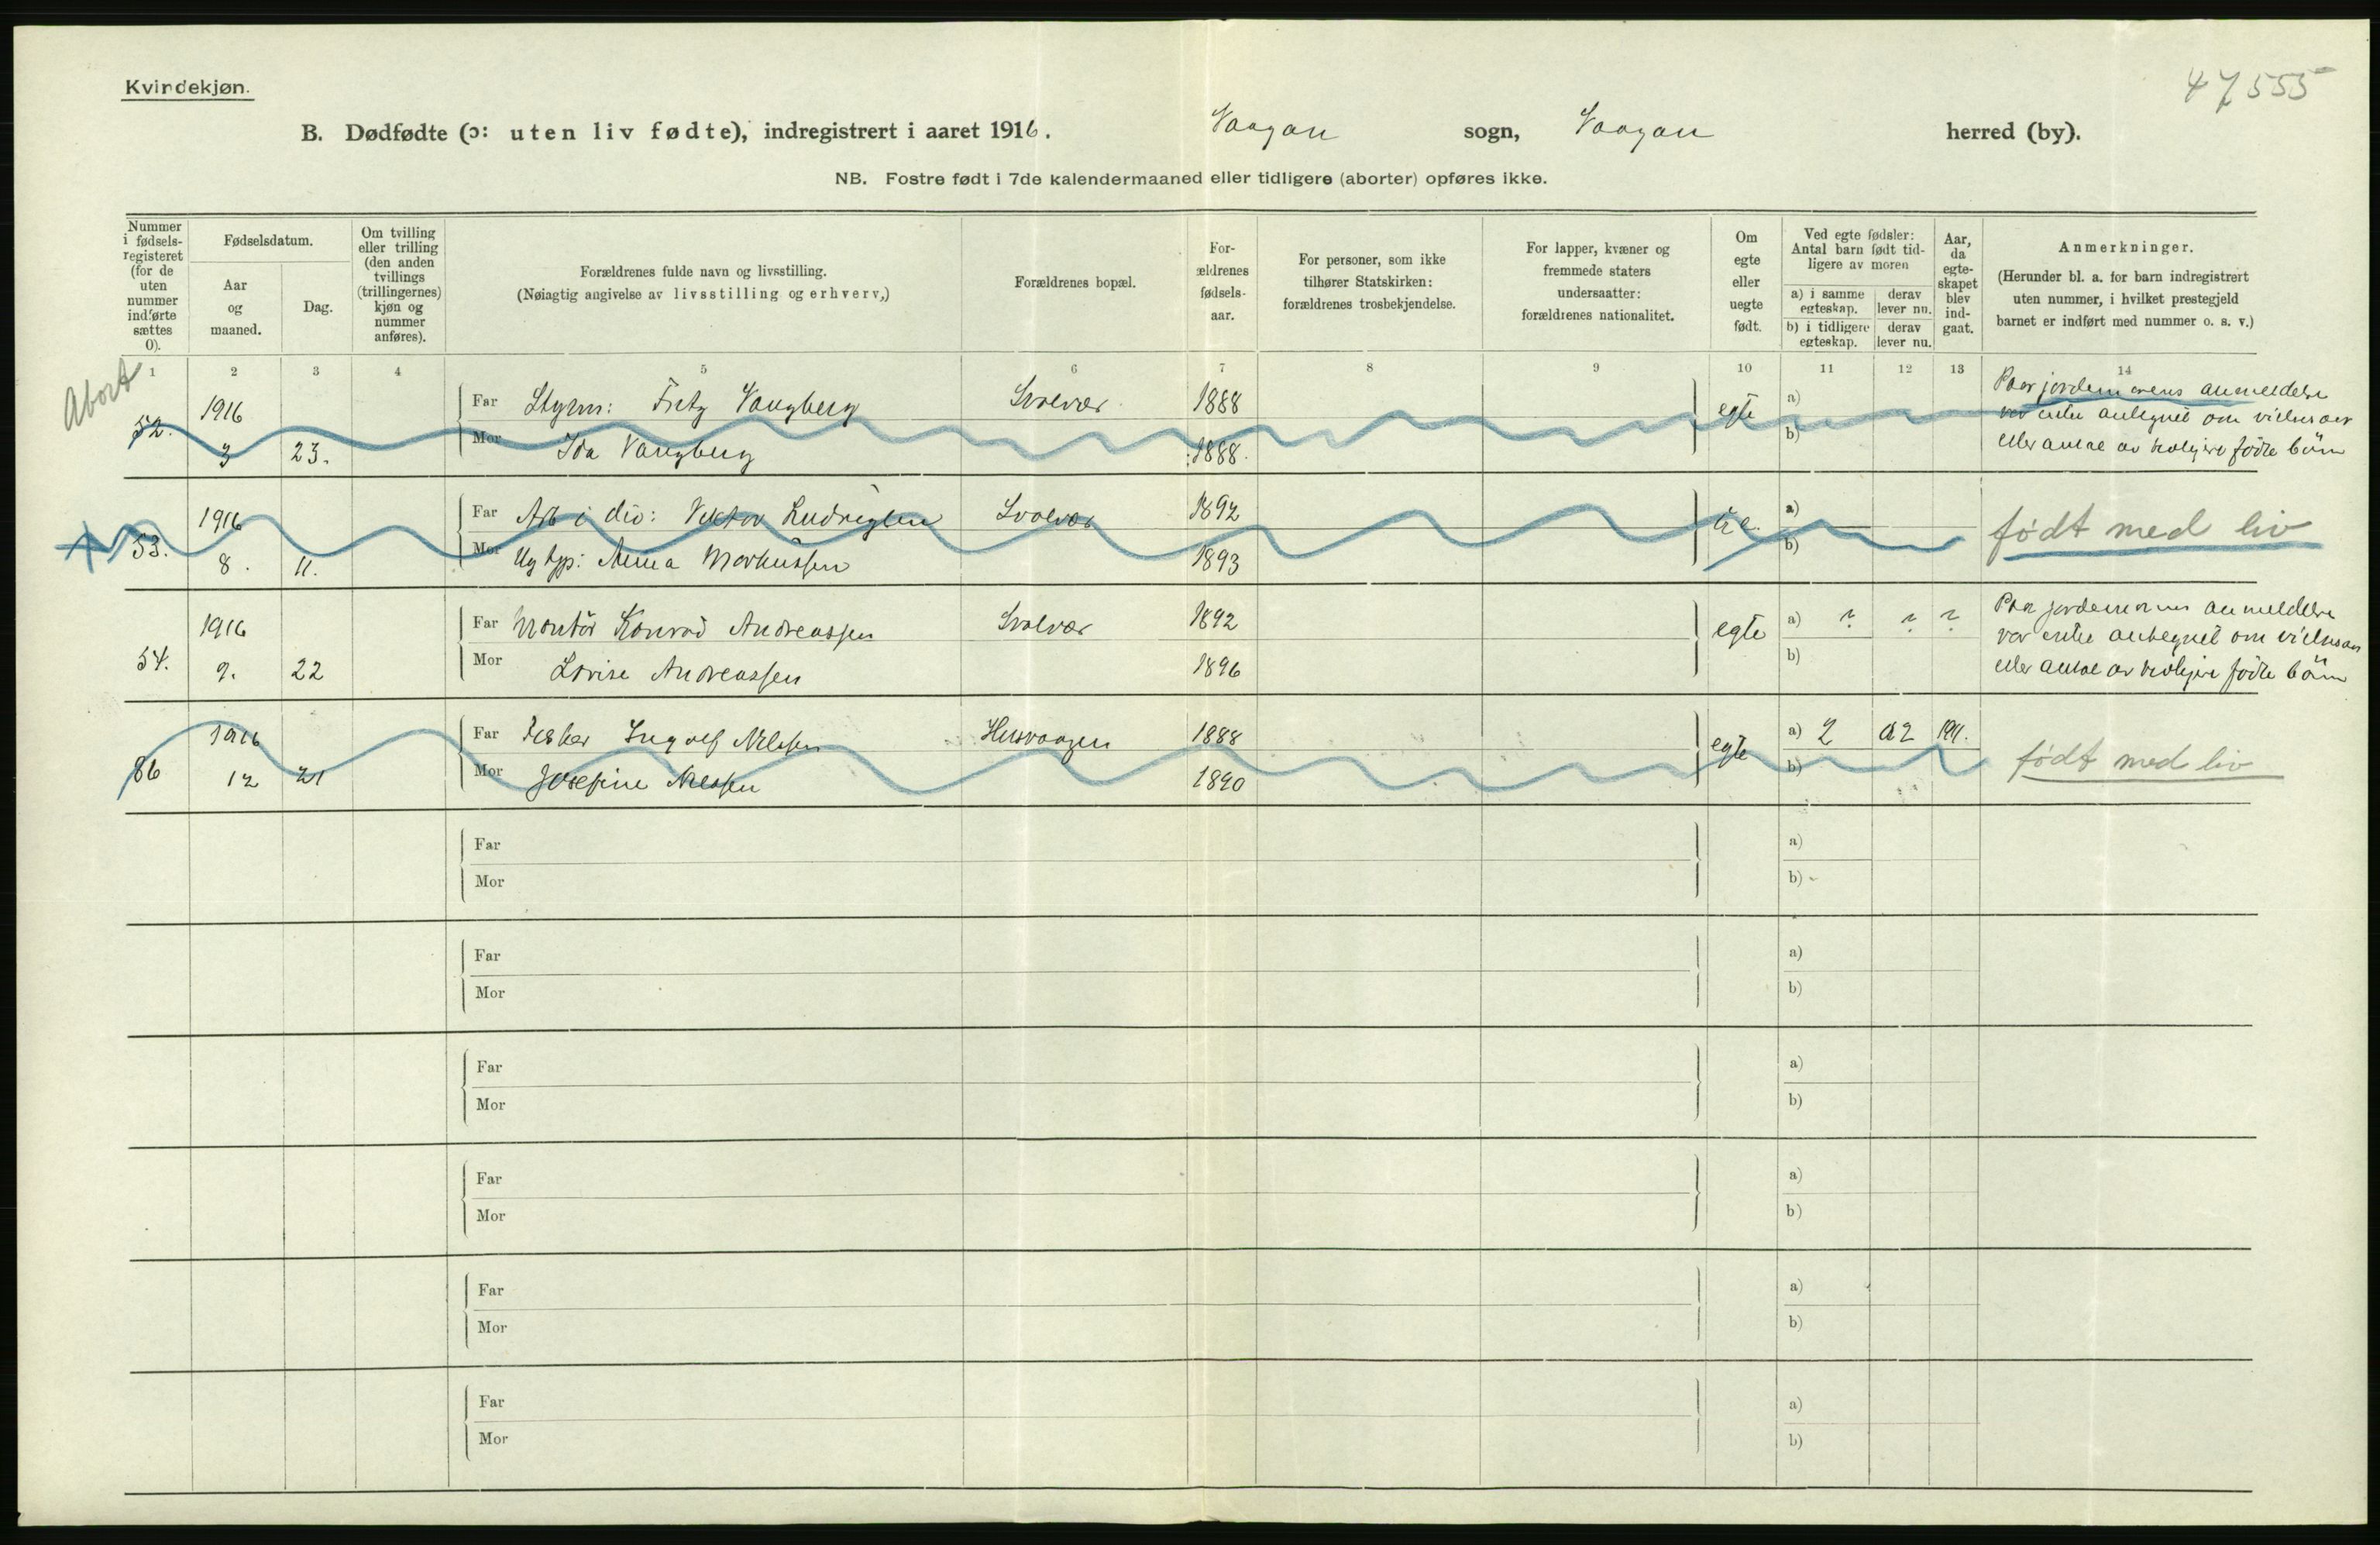 Kvindekjøn.
47555
B. Dødfødte (ɔ: uten liv fødte), indregistrert i aaret 1916. Vaagan sogn, Vaagan herred (by).
NB. Fostre født i 7de kalendermaaned eller tidligere (aborter) opføres ikke.
Nummer i fødsels-registeret (for de uten nummer indførte sættes 0).
Fødselsdatum.
Aar og maaned.
Dag.
Om tvilling eller trilling (den anden tvillings (trillingernes) kjøn og nummer anføres).
Forældrenes fulde navn og livsstilling.
(Nøiagtig angivelse av livsstilling og erhverv,)
Forældrenes bopæl.
For-ældrenes fødsels-aar.
For personer, som ikke tilhører Statskirken: forældrenes trosbekjendelse.
For lapper, kvæner og fremmede staters undersaatter: forældrenes nationalitet.
Om egte eller uegte født.
Ved egte fødsler: Antal barn født tid-ligere av moren
a) i samme egteskap. derav lever nu.
b) i tidligere egteskap. derav lever nu.
Aar, da egte-skapet blev ind-gaat.
Anmerkninger.
(Herunder bl. a. for barn indregistrert uten nummer, i hvilket prestegjeld barnet er indført med nummer o. s. v.)
1 2 3 4 5 6 7 8 9 10 11 12 13 14
Abort
52. 1916 3 23.
Far Styrm: Fritz Vangberg Svolvær 1888 egte a)
Mor Ida Vangberg 1888. b)
Paa jordemorens anmeldelse
var intet antegnet om vielsesaar
eller antal av tidligere fødte börn
53. 1916 8. 11.
Far Arb i div: Viktor Ludvigsen Svolvær 1892 a)
Mor Ug tjp: Anna Markussen 1893 b)
født med liv
54. 1916 9. 22
Far Montör Konrad Andreassen Svolvær 1892 egte a) ? ? ?
Mor Lovise Andreassen 1896 b)
Paa jordemorens anmeldelse
var intet antegnet om vielsesaar
eller antal av tidligere fødte börn
86 1916 12 21
Far Fisker Ingolf Nilssen Husvaagen 1888 egte a) 2 a2 1911.
Mor Josefine Nilssen 1890 b)
født med liv
Far a)
Mor b)
Far a)
Mor b)
Far a)
Mor b)
Far a)
Mor b)
Far a)
Mor b)
Far a)
Mor b)